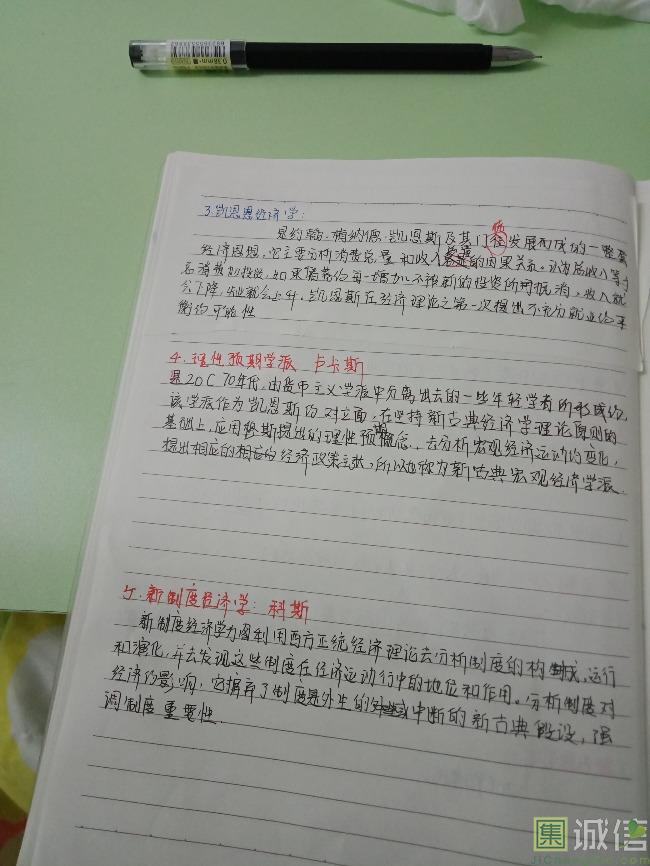 0.38mm
3.凯恩思经济学:
是约翰·梅纳德·凯恩斯及其门徒发展而成的一整套
经济思想,它主要分析消费总量和收入总量的因果关系。认为总收入等于
总消费加投资,如果储蓄的每一增加不被新的投资所抵消,收入就
会下降,失业就会上升,凯恩斯在经济理论之第一次提出不充分就业的平
衡的可能性
4.理性预期学派 卢卡斯
是20C 70年代,由货币主义学派中分离出去的一些年轻学者所形成的,
该学派作为凯恩斯的对立面,在坚持新古典经济学理论原则的
基础上,应用穆斯提出的理性预期概念,去分析宏观经济运动的变化,
提出相应的相应的经济政策主张,所以也称为新古典宏观经济学派.
5.新制度经济学:科斯
新制度经济学力图利用西方正统经济理论去分析制度的构成,运行
和演化,并去发现这些制度在经济运动行中的地位和作用。分析制度对
经济的影响,它摒弃了制度是外生的或中断的新古典假设,强
调制度重要性.
集诚信